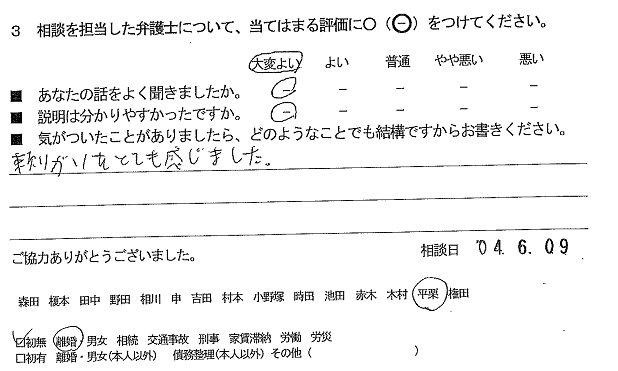 3 相談を担当した弁護士について、当てはまる評価に○（⊖）をつけてください。
大変よい よい 普通 やや悪い 悪い
■ あなたの話をよく聞きましたか。 － － － － －
■ 説明は分かりやすかったですか。 － － － － －
■ 気がついたことがありましたら、どのようなことでも結構ですからお書きください。
頼りがいをとても感じました。
ご協力ありがとうございました。
相談日 '04 6. 09
森田 榎本 田中 野田 相川 申 吉田 村本 小野塚 時田 池田 赤木 木村 平栗 権田
□初無 離婚・男女 相続 交通事故 刑事 家賃滞納 労働 労災
□初有 離婚・男女(本人以外) 債務整理(本人以外) その他（ ）